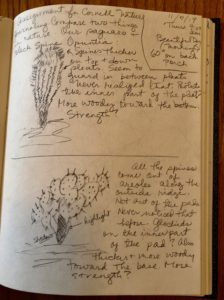 assignment for Cornell Nature
Journaling Compare two things
in nature Our Saguaro &
Opuntia
Spines thicker
on top + down
pleats seem to
guard in between pleats
never realized that
inner part of the pad?
More woody toward the bottom.
Strength
Beautiful
60°
on back
porch
All the spines
come out of
areoles along the
outside ridge.
Not out of the pads
Never noticed that
before. Glochids
on the inner part
of the pad? Also
thicker + more woody
toward the base. More
strength?
highlight